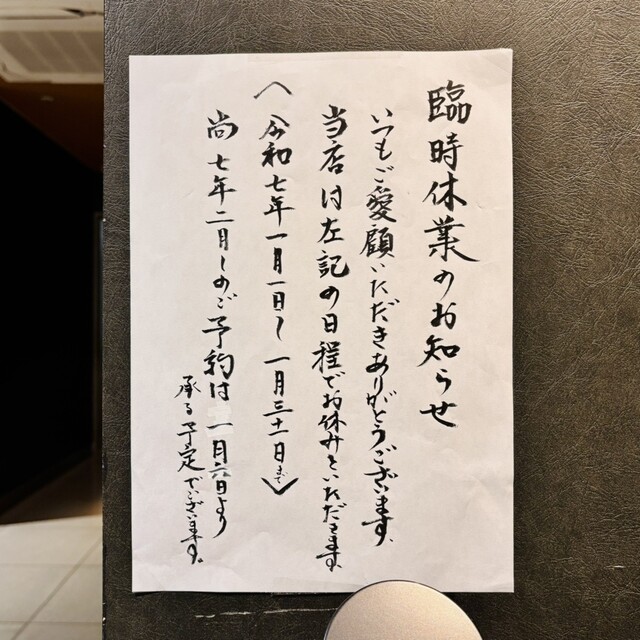 臨時休業のお知らせ
いつもご愛顧いただきありがとうございます。
当店は左記の日程でお休みをいただきます。
〈令和七年一月一日〜一月三十一日まで〉
尚七年二月〜のご予約は一月六日より
承る予定でございます。